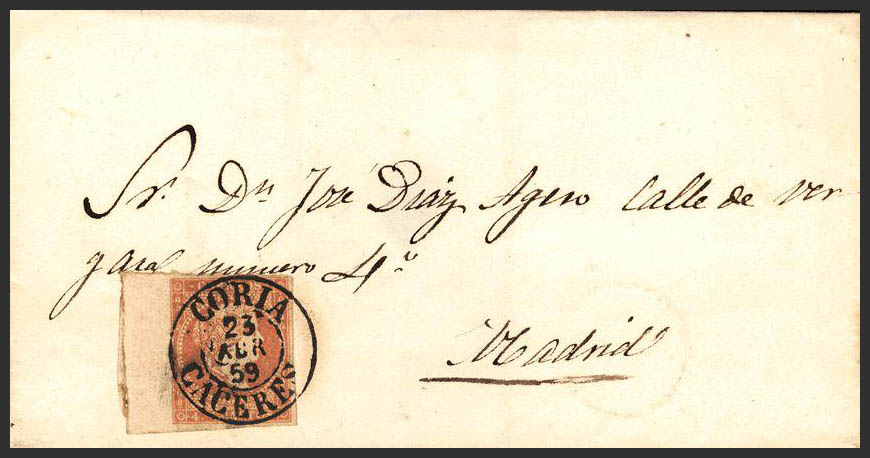 Sr. Dn José Diaz Agero Calle de Ver
gara numero 4º
Madrid
CORIA
23
ABR
59
CACERES